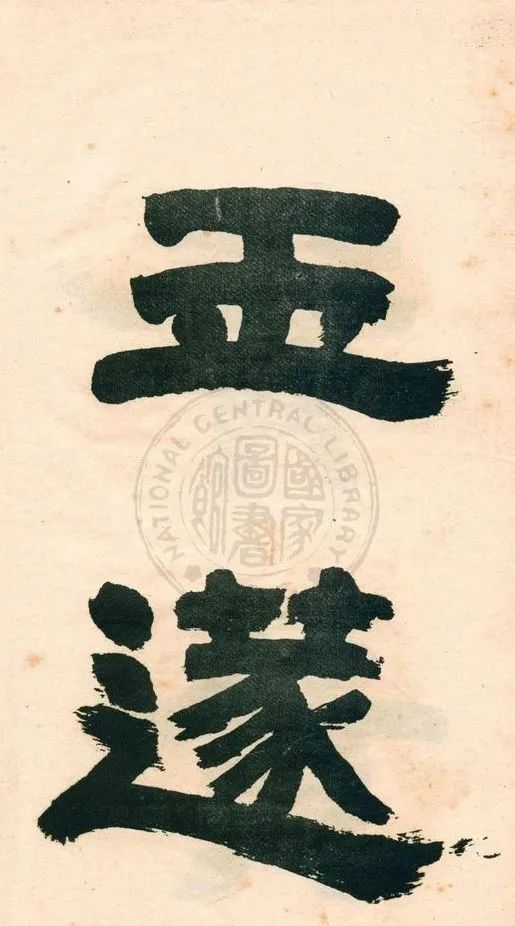 遂
NATIONAL CENTRAL LIBRARY
國家圖書館